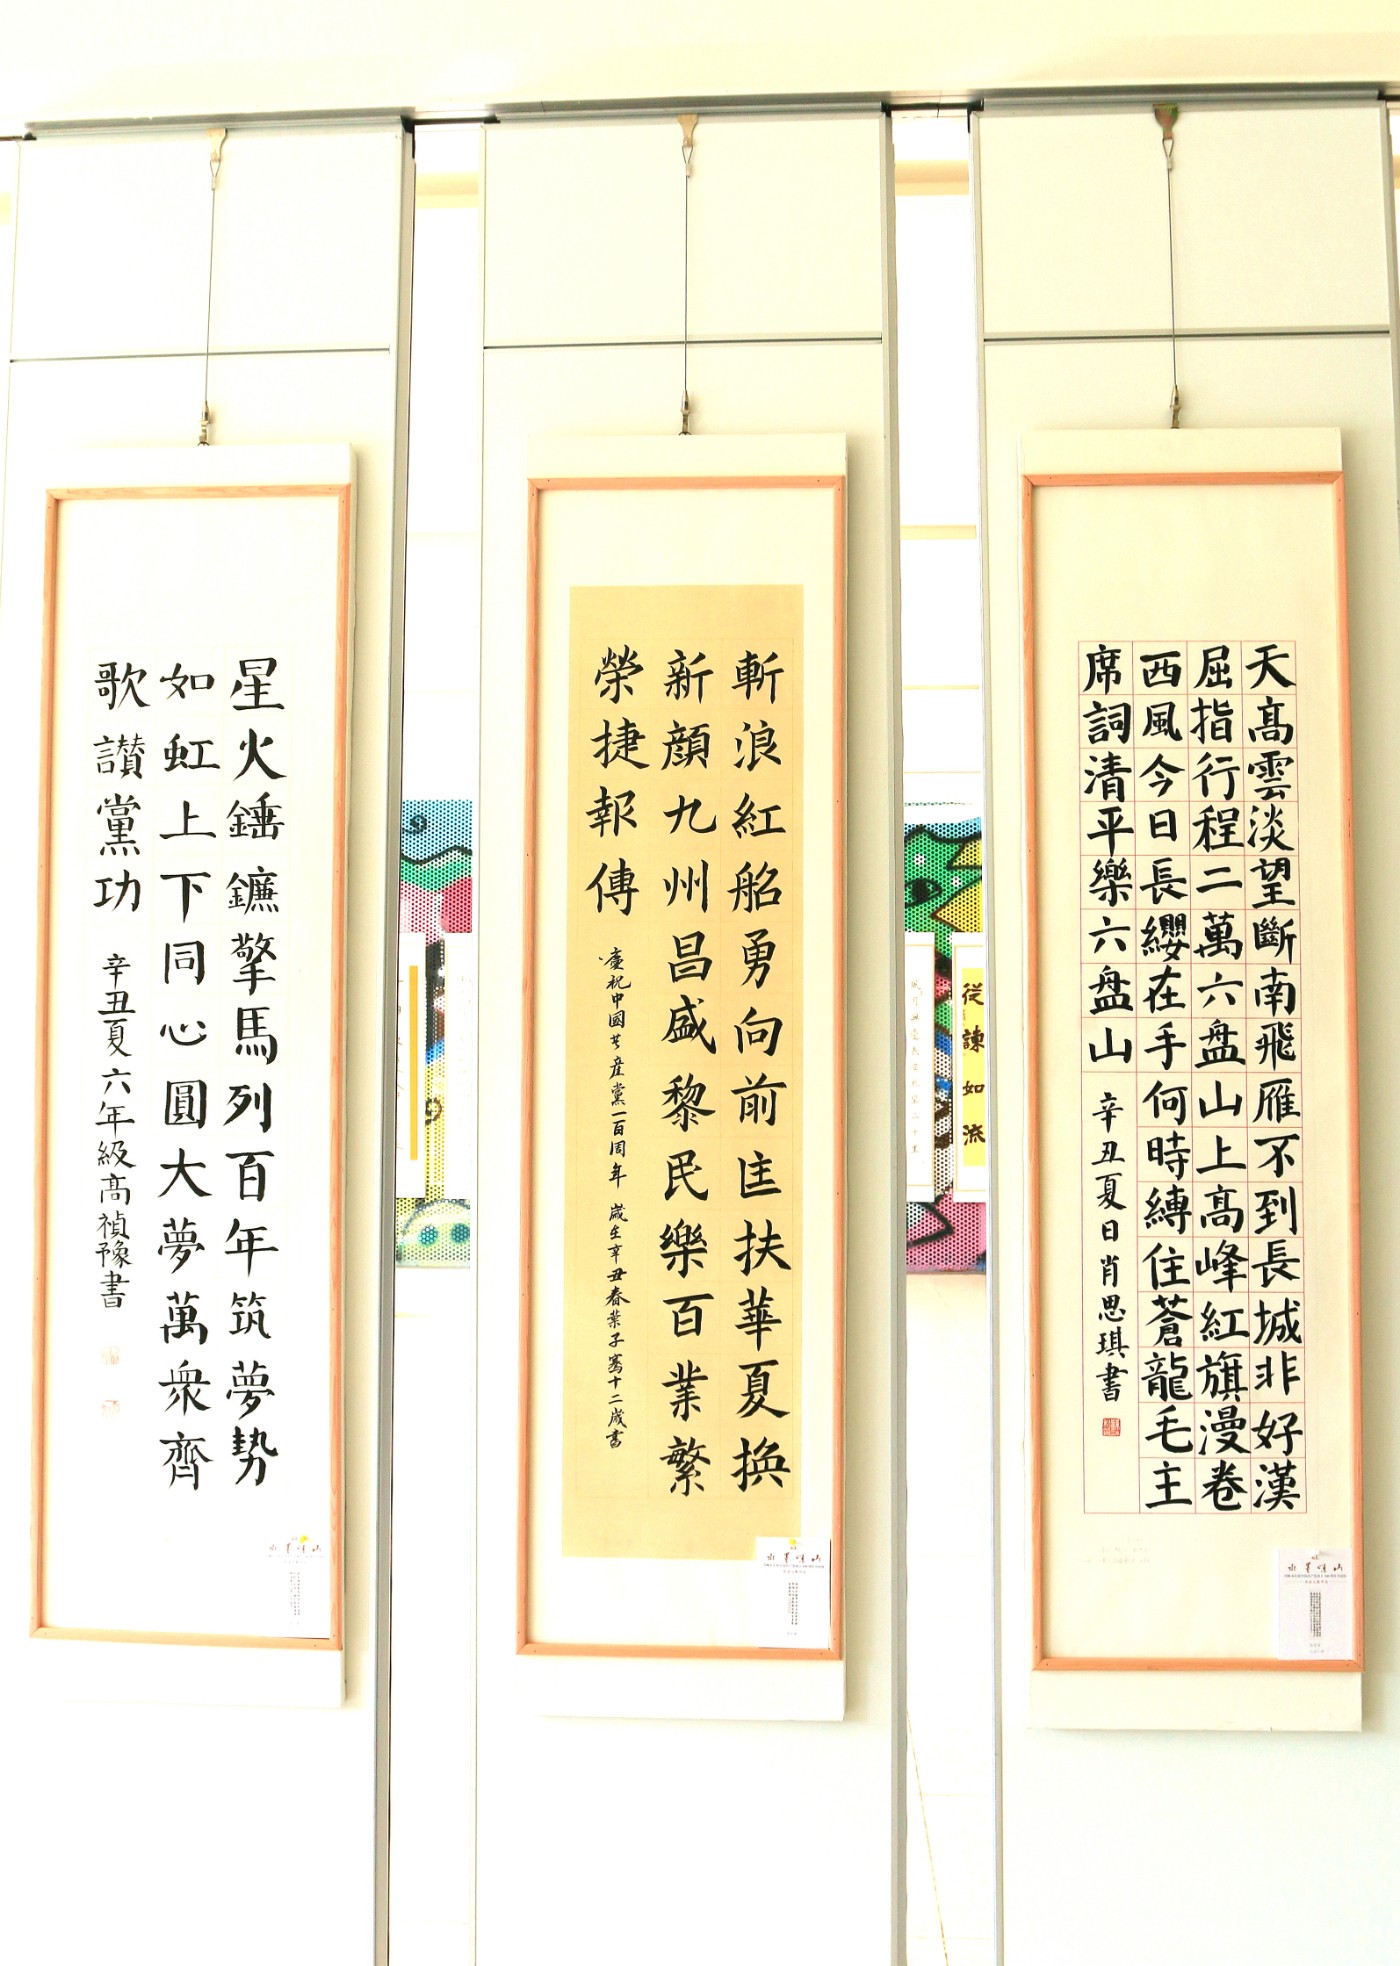 天高雲淡望斷南飛雁不到長城非好漢
屈指行程二萬六盤山上高峰紅旗漫卷
西風今日長纓在手何時縛住蒼龍毛主
席詞清平樂六盤山
辛丑夏日肖思琪書
斬浪紅船勇向前匡扶華夏換
新顏九州昌盛黎民樂百業繁
榮捷報傳
慶祝中國共產黨一百周年 歲在辛丑春葉子騫十二歲書
星火錘鐮擎馬列百年筑夢勢
如虹上下同心圓大夢萬衆齊
歌讚黨功
辛丑夏六年級高禎豫書
從諫如流